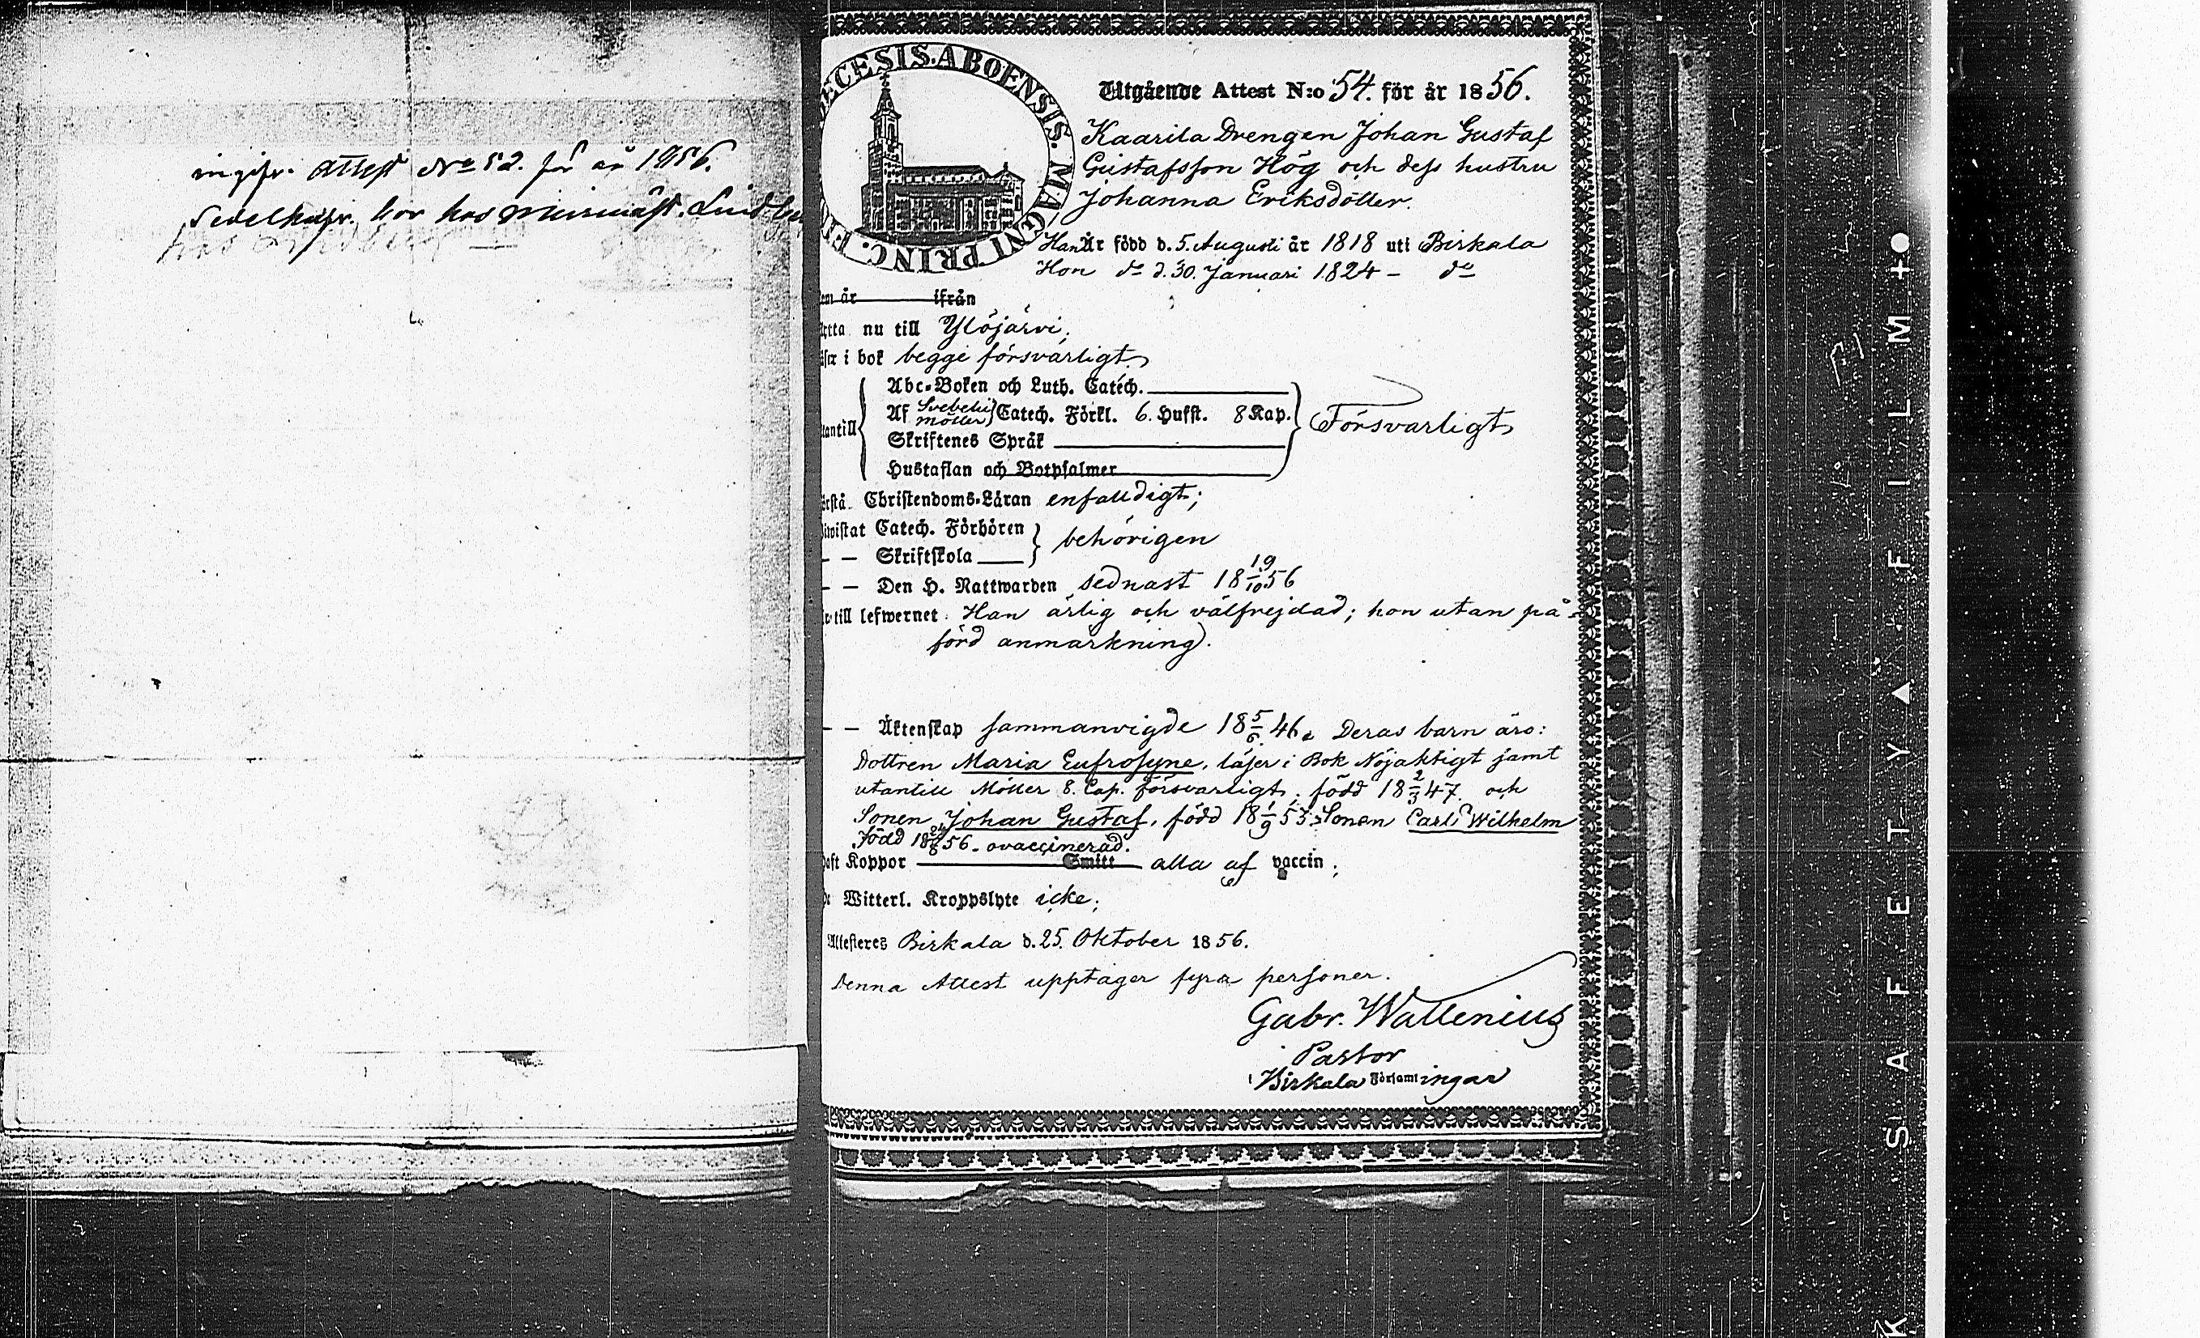 ingifv. Attest No 52. för år 1856.
bor hos
DIOECESIS. ABOENSIS. MAGNI PRINC. FIN
Utgående Attest N:o 54. för år 1856.
Kaarila Drengen Johan Gustaf
Gustafsson Hög och dess hustru
Johanna Eriksdotter.
Han Är född d. 5. Augusti år 1818 uti Birkala
Hon do d. 30. Januari 1824 - do
om år ifrån
nu till Ylöjärvi;
i bok begge försvarligt
Abc-Boken och Luth. Catech.
Af Svebelii Möller Catech. Förkl. 6. Hufst. 8 Kap.
antill Försvarligt
Skriftenes Språk
Hustaflan och Botpsalmer
rstå Christendoms-Läran enfaldigt;
wistat Catech. Förhören
behörigen
— Skriftskola
— — Den H. Nattwarden sednast 18 19/10 56
till lefwernet Han ärlig och välfrejdad; hon utan på-
förd anmärkning.
— — Äktenskap sammanvigde 18 5/6 46. Deras barn äro:
Dottren Maria Eufrosyne, läser i Bok Nöjaktigt samt
utantill Möller 8. Cap. försvarligt, född 18 2/3 47 och
Sonen Johan Gustaf, född 18 1/9 53. Sonen Carl Wilhelm
Född 18 56. ovaccinerad.
aft Koppor Smitt alla af vaccin;
Witterl. Kroppslyte icke;
Attesteres Birkala d. 25. Oktober 1856.
Denna Attest upptager fyra personer.
Gabr. Wallenius
Pastor
i Birkala Församlingar
K SAFETY ▲ FILM +●